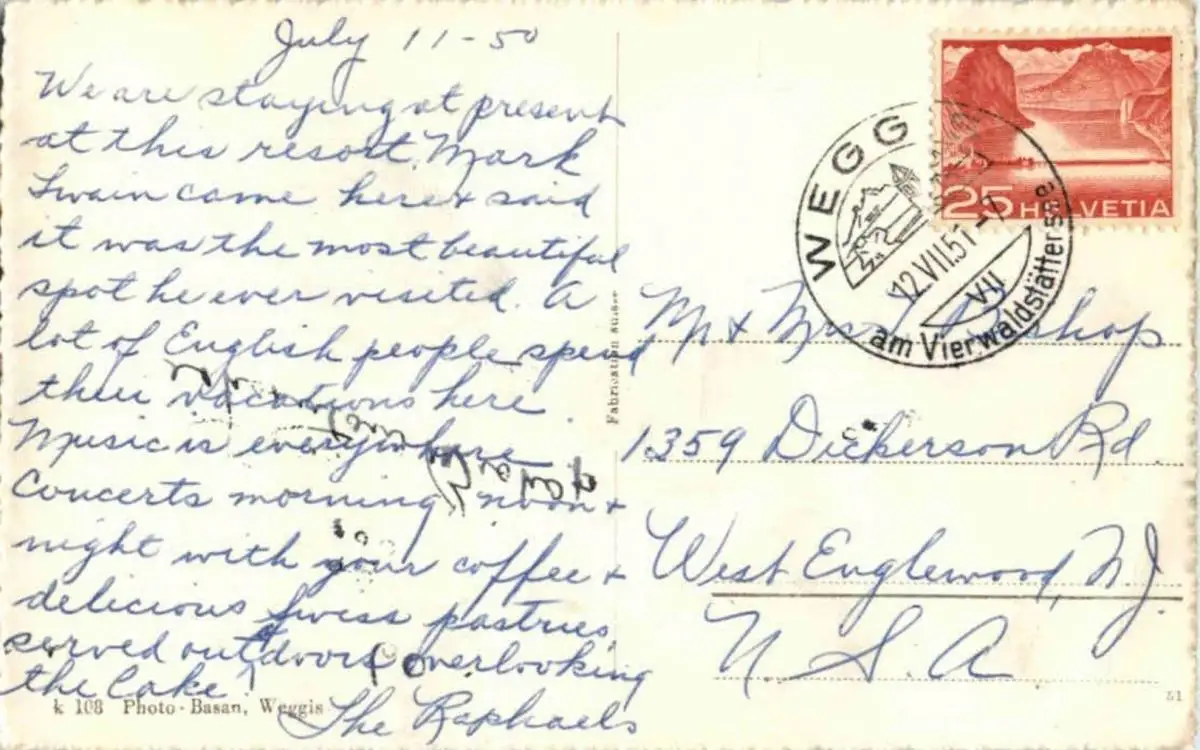 July 11-50
We are staying at present
at this resort. Mark
Twain came here & said
it was the most beautiful
spot he ever visited. A
lot of English people spend
their vacations here.
Music is everywhere
Concerts morning, noon &
night with your coffee &
delicious Swiss pastries,
served outdoors overlooking
the lake!
The Raphaels
k 108 Photo-Basan, Weggis
Fabrication suisse
25 HELVETIA
WEGG
12.VII.51
VII
am Vierwaldstättersee
Mr & Mrs
1359 Dickerson Rd.
West Englewood, N.J.
U S. A
51